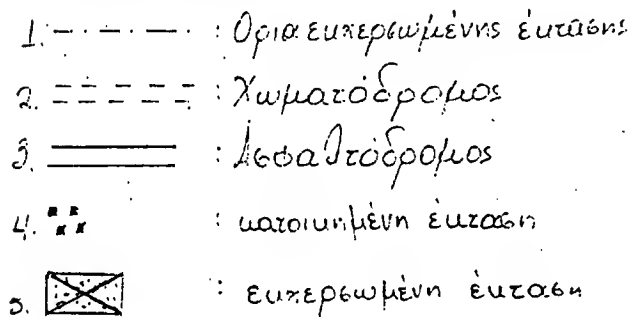 1. : Όρια εκχερσωμένης έκτασης
2. : Χωματόδρομος
3. : Ασφαλτόδρομος
4. : κατοικημένη έκταση
5. : εκχερσωμένη έκταση